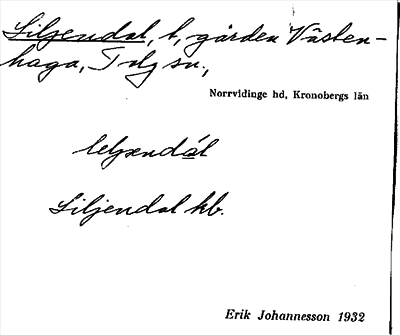 Liljendal, t, gården Västen-
haga, Tolg sn.,
Norrvidinge hd, Kronobergs län
Liljendal kb.
Erik Johannesson 1932